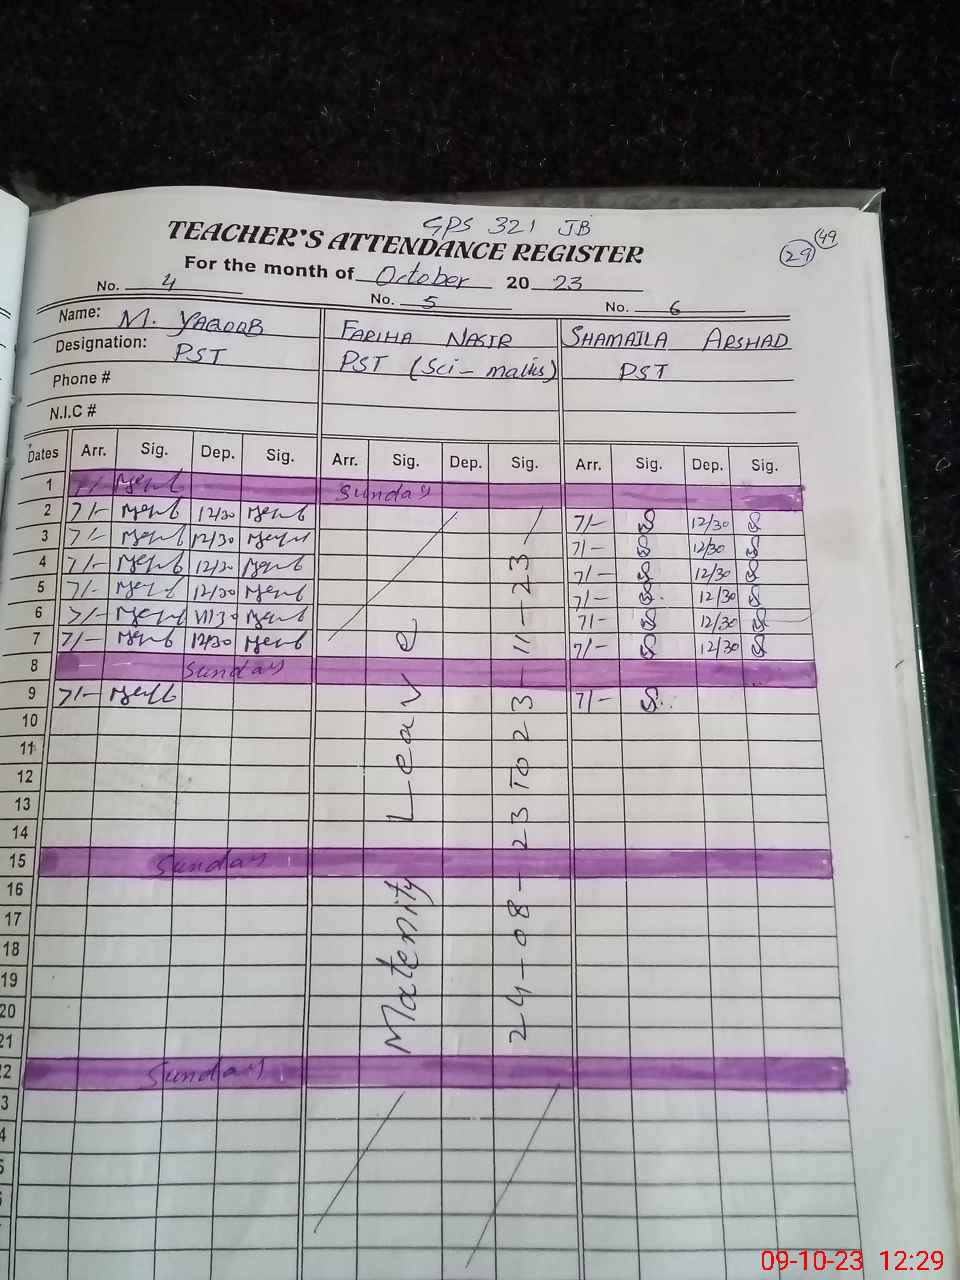 GPS 321 JB
TEACHER'S ATTENDANCE REGISTER
29 49
For the month of October 20 23
No. 4 No. 5 No. 6
Name: M. YAQOOB FARIHA NASIR SHAMAILA ARSHAD
Designation: PST PST (Sci-maths) PST
Phone #
N.I.C #
Dates Arr. Sig. Dep. Sig. Arr. Sig. Dep. Sig. Arr. Sig. Dep. Sig.
1 7/- Sunday
2 7/- 12/30 7/- 12/30
3 7/- 12/30 7/- 12/30
4 7/- 12/30 7/- 12/30
5 7/- 12/30 7/- 12/30
6 7/- 12/30 7/- 12/30
7 7/- 12/30 7/- 12/30
8 Sunday
9 7/- 7/-
10
11
12
13
14
15 Sunday
16
17
18
19
20
21
22 Sunday
3
4
5
Maternity Leave
24-08-23 TO 23-11-23
09-10-23 12:29